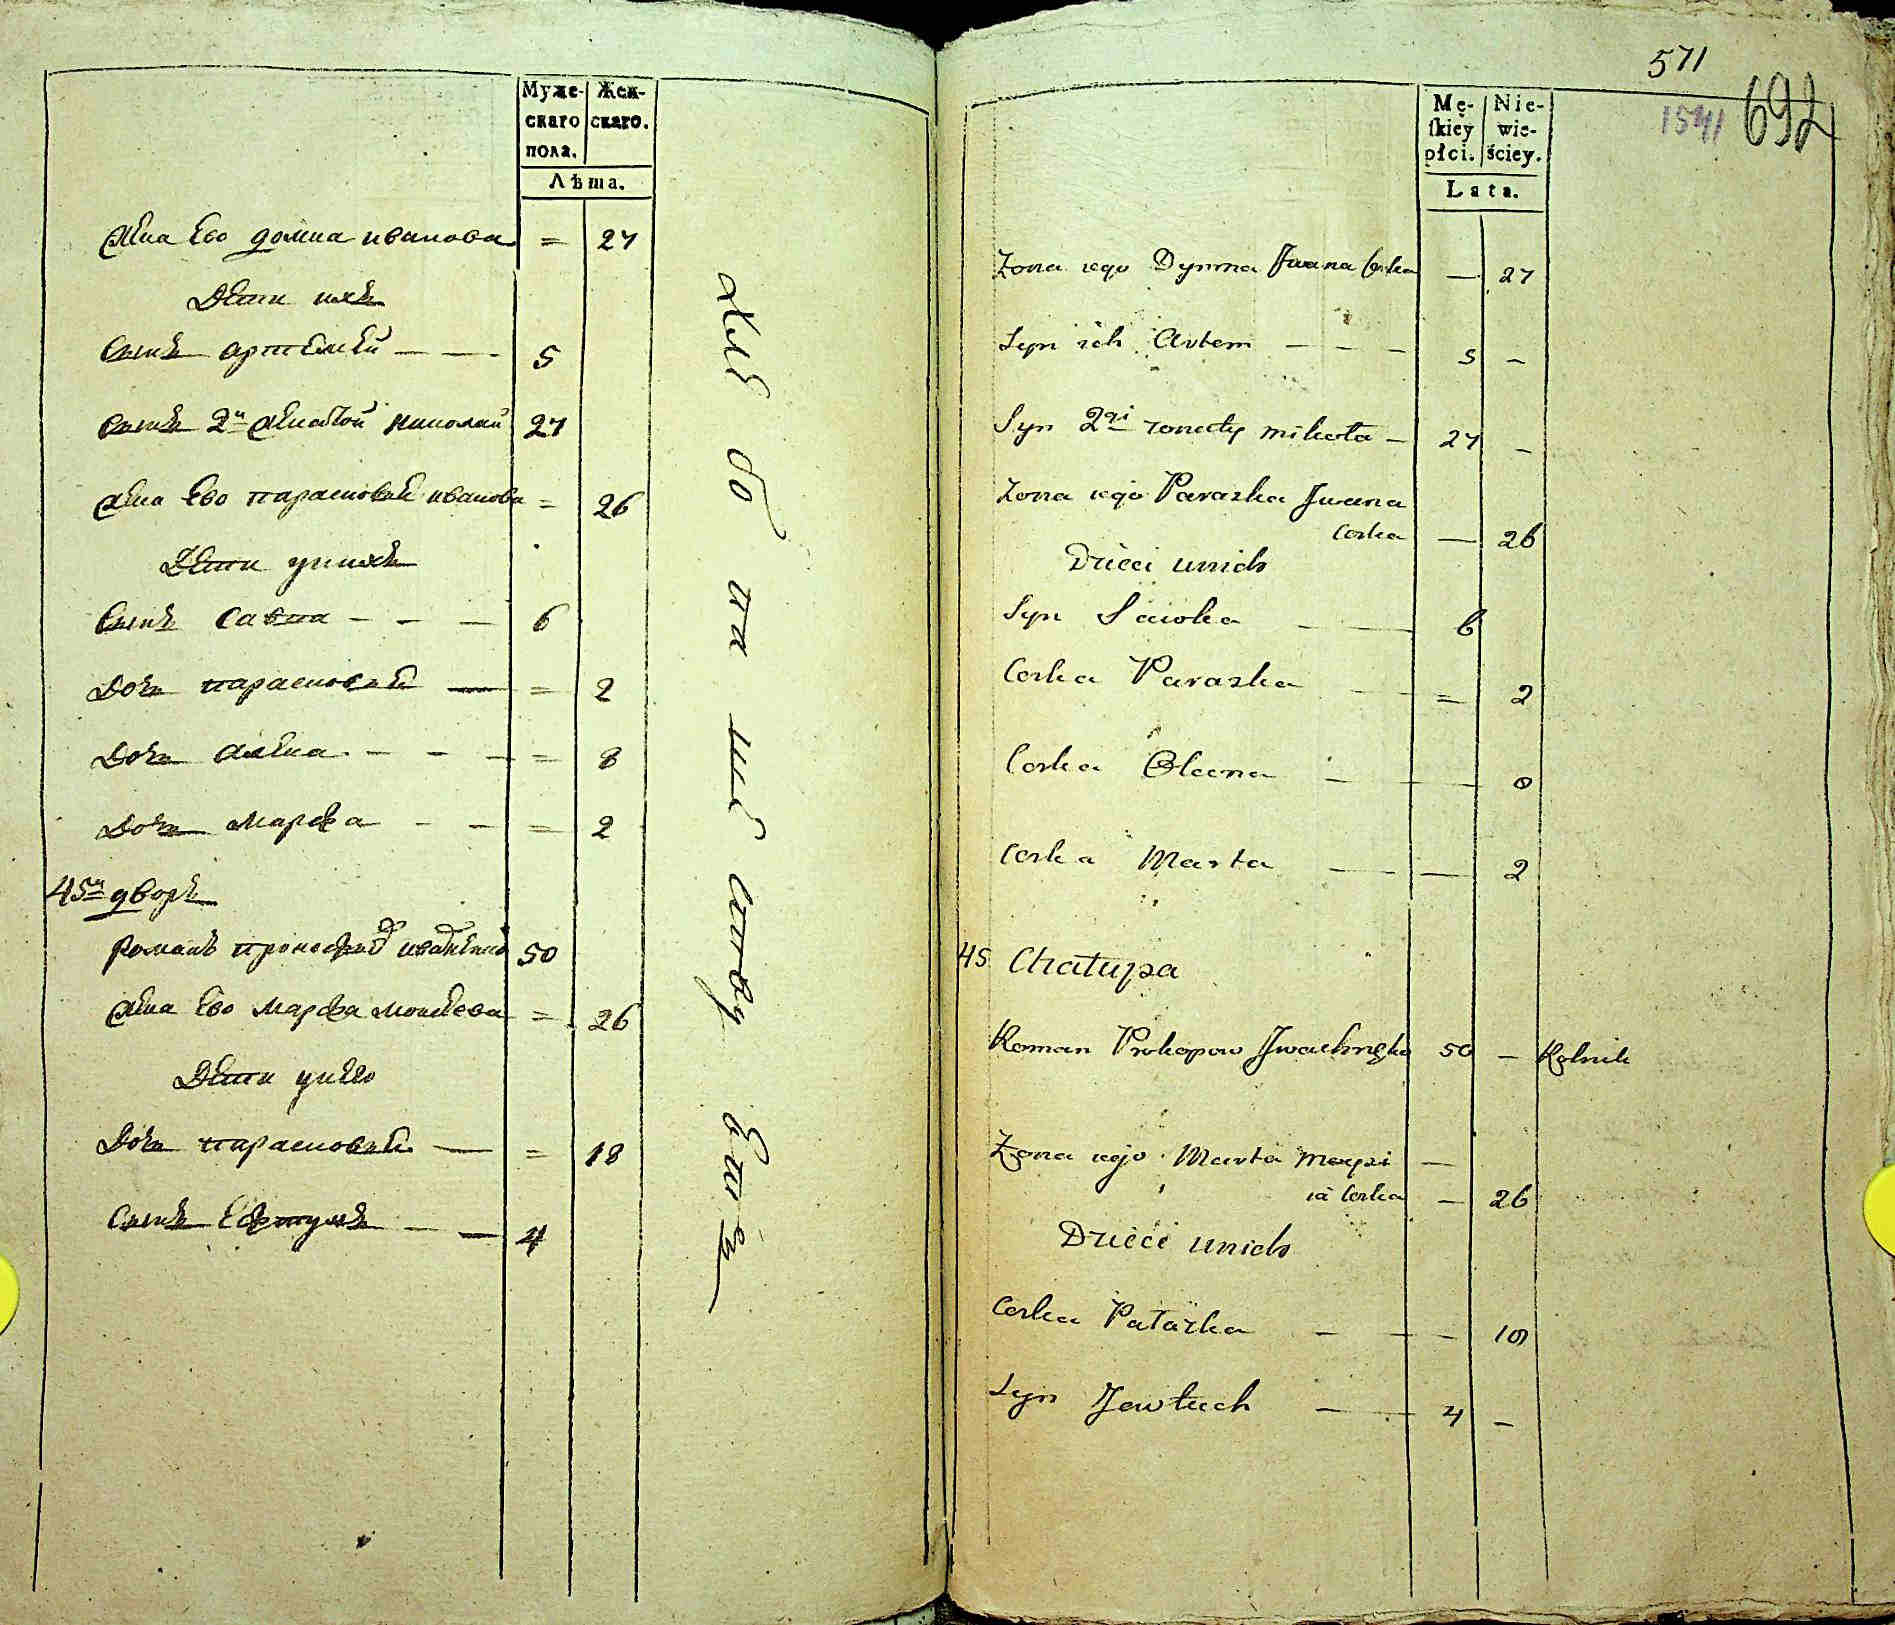 Муже-
скаго
пола.
Жен-
скаго.
Лѣта.
жена Ево домна иванова = 27
Дети ихъ
Сынъ артемей — — 5
Сынъ 2й женатой николай 27
жена Ево парасковея иванова = 26
Дети унихъ
Сынъ Савка — — — 6
Дочь парасковея — = 2
Дочь Алена — — — = 8
Дочь Марфа — — = 2
45й дворъ
Романъ прокофиев 50
жена Ево Марфа моисеева = 26
Дети унего
Дочь парасковея — = 18
Сынъ Ефтухъ — — 4
571
1541 692
Mę-
skiey
płci.
Nie-
wie-
ściey.
Lata.
Zona iego Dymna Jwana Corka — 27
Syn ich Artem — — — 5 —
Syn 2gi zonaty mikoła — 27 —
Zona iego Paraska Jwana
Corka — 26
Dzieci unich
Syn Sawka — — 6
Corka Paraska — — = 2
Corka Oleena — — — 8
Corka Marta — — — 2
45 Chałupa
Roman Prokopow 50 — Rolnik
Zona iego Marta —
Corka — 26
Dzieci unich
Corka Parazka — — — 18
Syn Jewtuch — — 4 —